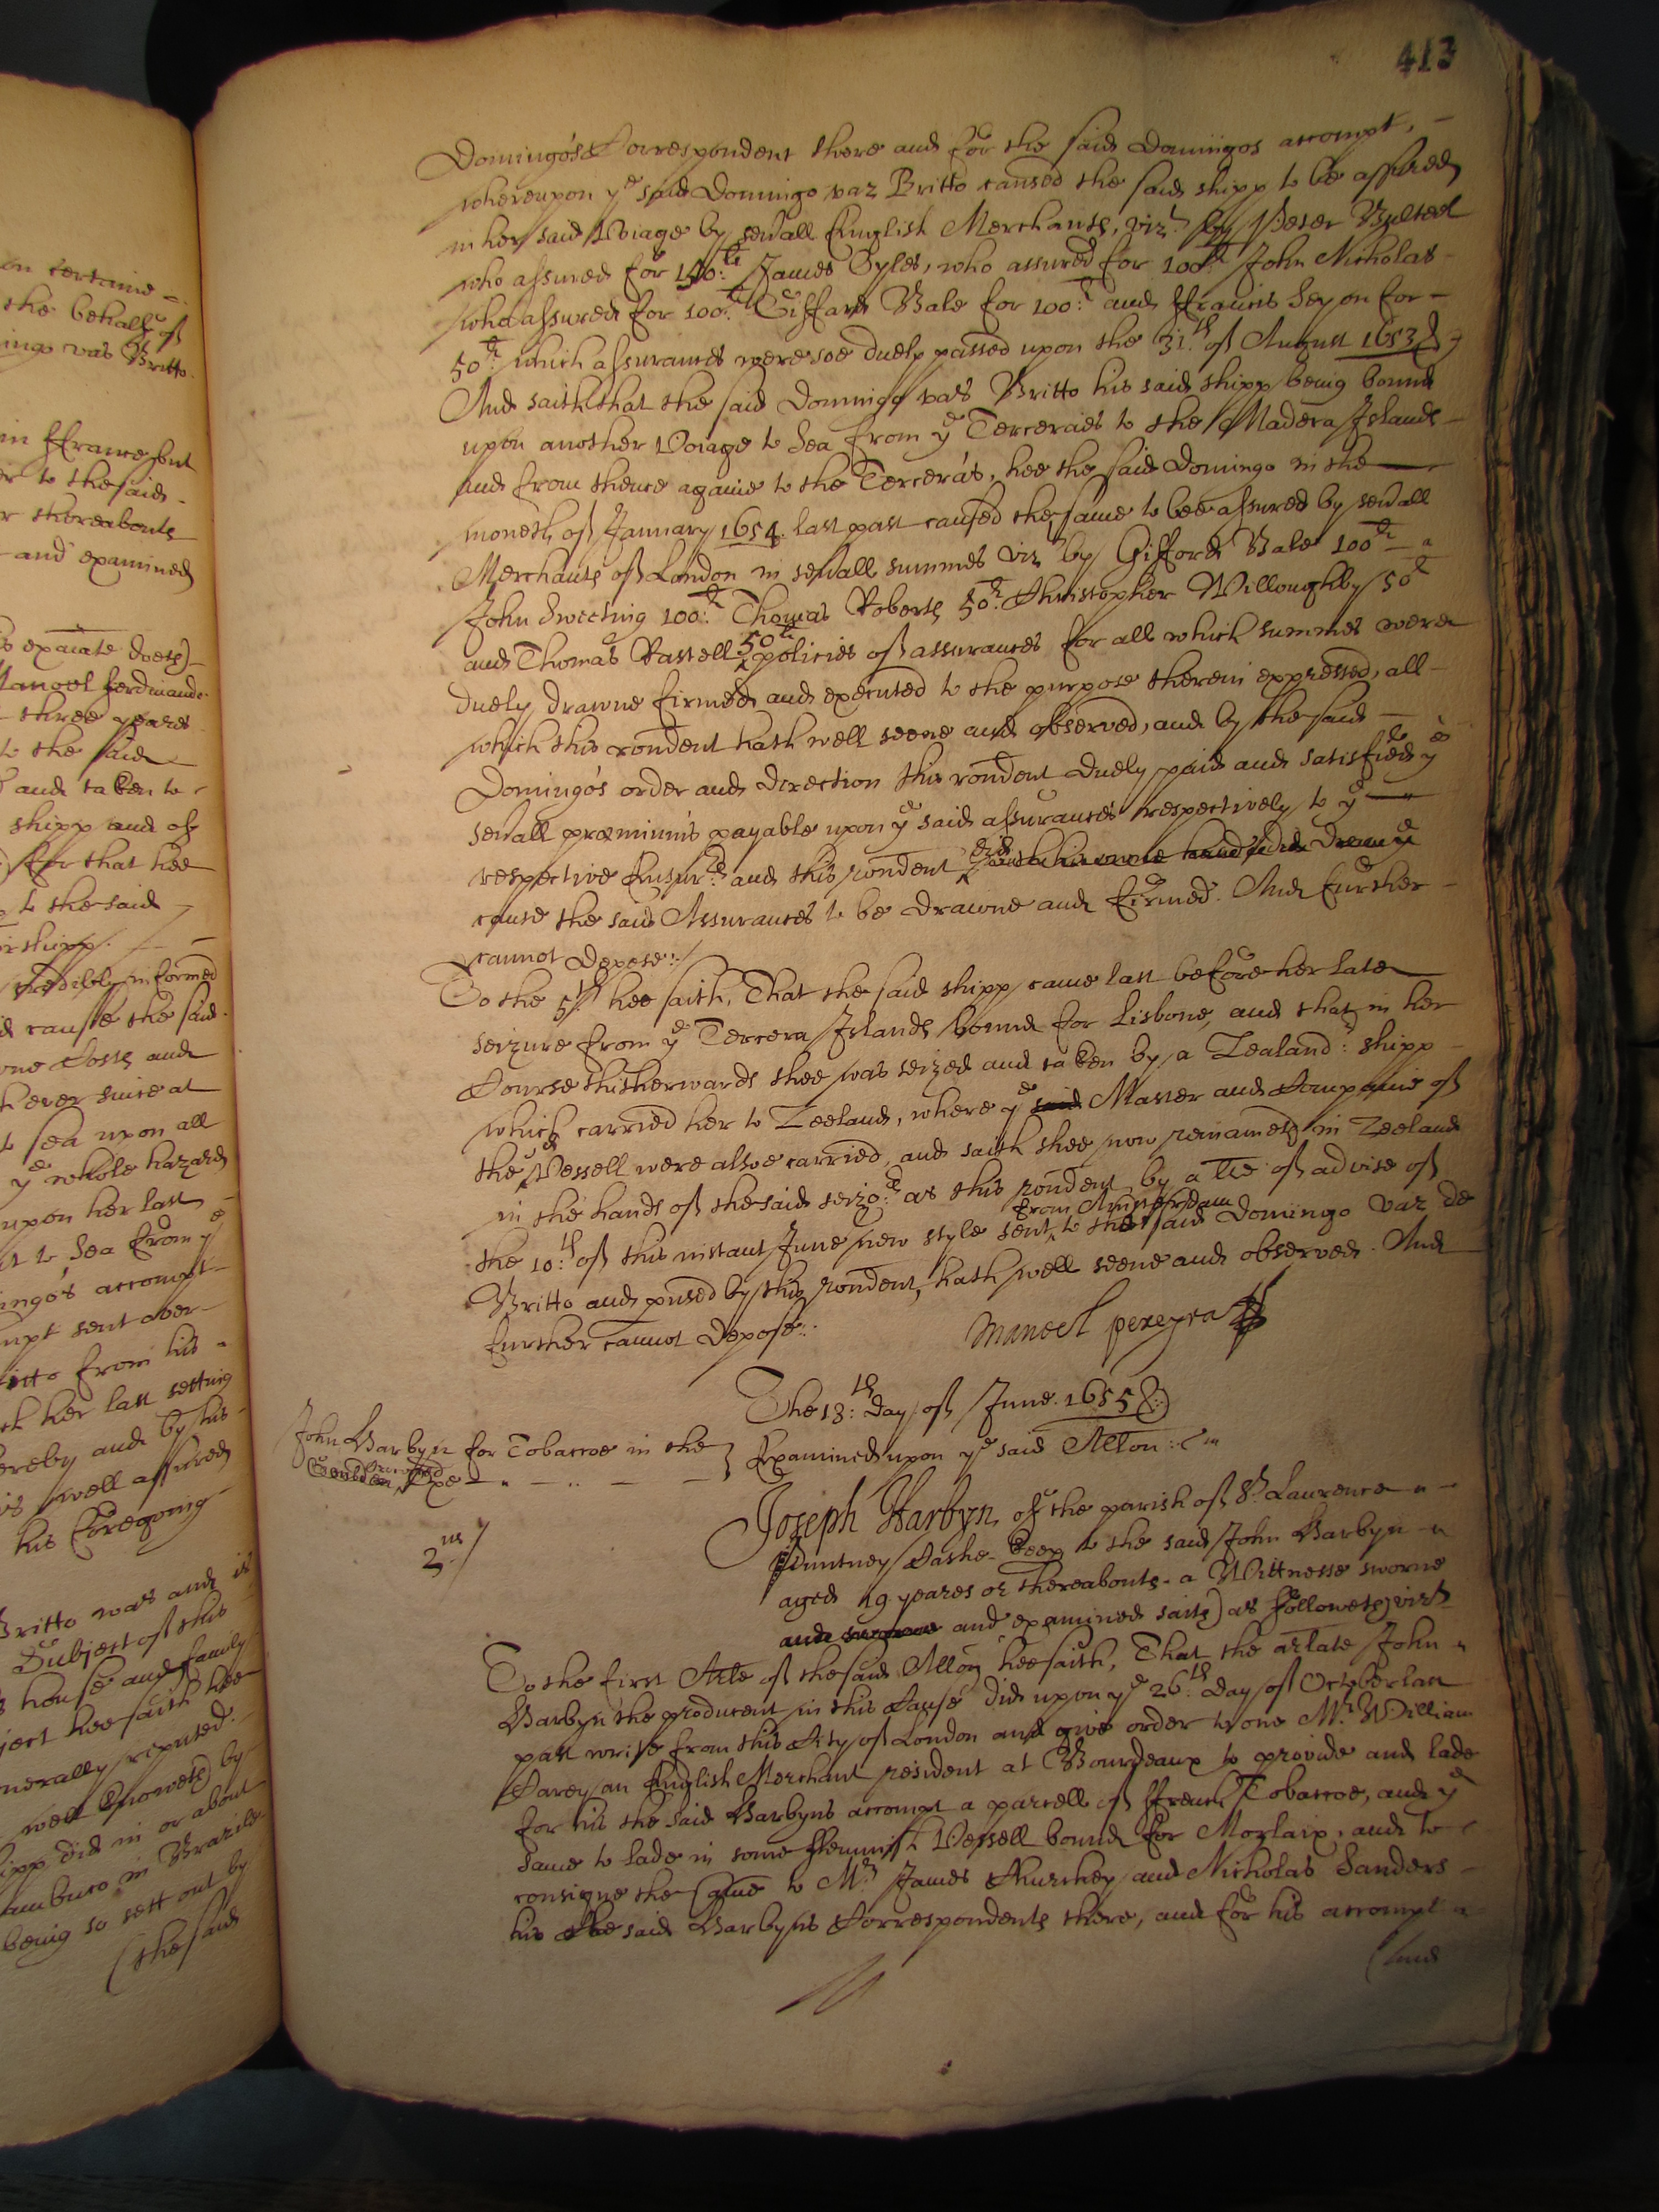 413
Domingo's Correspondent there and for the said Domingos accompt, -
whereupon ye said Domingo vaz Britto caused the said shipp to be assured
in her said Voiage by severall English Merchants, vizt by Peter Bulteel
who assured for 150:li James Gyles, who assured for 100li John Nicholas -
who assured for 100:li Giffard Bale for 100:li and ffrancis Seyon for -
50li which assurances were soe duely passed upon the 31:th of August 1653
And saith that the said Domingo vas Britto his said shipp being bound
upon another Voiage to Sea from ye Terceraes to the Madera Islands -
and from thence againe to the Tercera's, hee the said Domingo in the
moneth of January 1654 last past caused the same to bee assured by severall
Merchants of London in severall summes viz by Gifford Bale 100li
John Sweeting 100:li Thomas Roberts 50li Christopher Willoughby 50li
and Thomas Rastell 50li policies of assurances for all which summes were
duely drawne firmed and executed to the purpose therein expressed, all -
which this rendent hath well seene and observed, and by the said
Domingo's order and direction this rondent duely paid and satisfied ye
severall præmiums payable upon ye said assurances respectively to ye
respective Ensurers and this rondent did with his owne hand
cause the said Assurances to be drawne and firmed. And further -
cannot depose:/
To the 5th hee saith, That the said shipp came last before her late
seizure from ye Tercera Islands bound for Lisbone, and that in her
Course thitherwards shee was seized and taken by a Zealand: shipp -
which carried her to Zeeland, where ye said Master and Companie of
the Vessell were alsoe carried, and saith shee now remaineth in Zeeland
in the hands of the said seizors as this rondent by a lre of advise of
the 10:th of this instant June new style sent from Amsterdam to the said Domingo vaz de
Britto and pused by this rondent, hath well seene and observed. And
further cannot depose:.
Manoel pereyra
The 18:th day of June. 1655
John Harbyn for Tobaccoe in the
Examined upon ye said Allon:
2us
Joseph Harbyn of the parish of St. Laurence
Puntney Cashe-keep to the said John Harbyn
aged 19 yeares or thereabouts - a Wittnesse sworne
and sworne and examined saith as followeth vizt
To the first Arle of the said Allon hee saith, That the arlate John
Harbyn the producent in this Cause did upon ye 26:th day of October last
past write from this City of London and give order to one Mr William
Carey an English Merchant resident at Bourdeaux to provide and lade
for his the said Harbyns accompt a parcell of ffrench Tobaccoe, and ye
same to lade in some fflemmish Vessell bound for Morlaix, and to
consigne the same to Mr James Thurshey and Nicholas Sanders -
his the said Harbyns Correspondents there, and for his accompt
(and
on certaine -
the behalfe of
ingo vas Britto.
in ffrance sent
er to the said -
r thereabouts
and examined
exaiate doeth)-
Manoel ferdinand
three yeares
to the said
and taken to
shipp and of
for that hee
to the said
shipp.
credibly informed
cause the said
Losse and
ever since at
sea upon all
ye whole hazard
upon her last
to Sea from ye
ingo's accompt
sent over -
itto from his
her last setting
ereby and by this
well assured
his foregoing
Britto was and is
Subject of this
house and family
ject hee saith hee
nerally reputed.
well knoweth by
ipp did in or about
ambuco in Brazile
being so sett out by
(the said